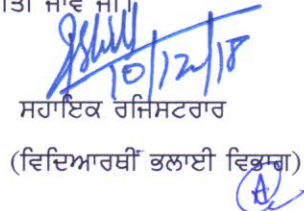 ਜਾਵੇ ਜੀ।
10/12/18
ਸਹਾਇਕ ਰਜਿਸਟਰਾਰ
(ਵਿਦਿਆਰਥੀ ਭਲਾਈ ਵਿਭਾਗ)
A